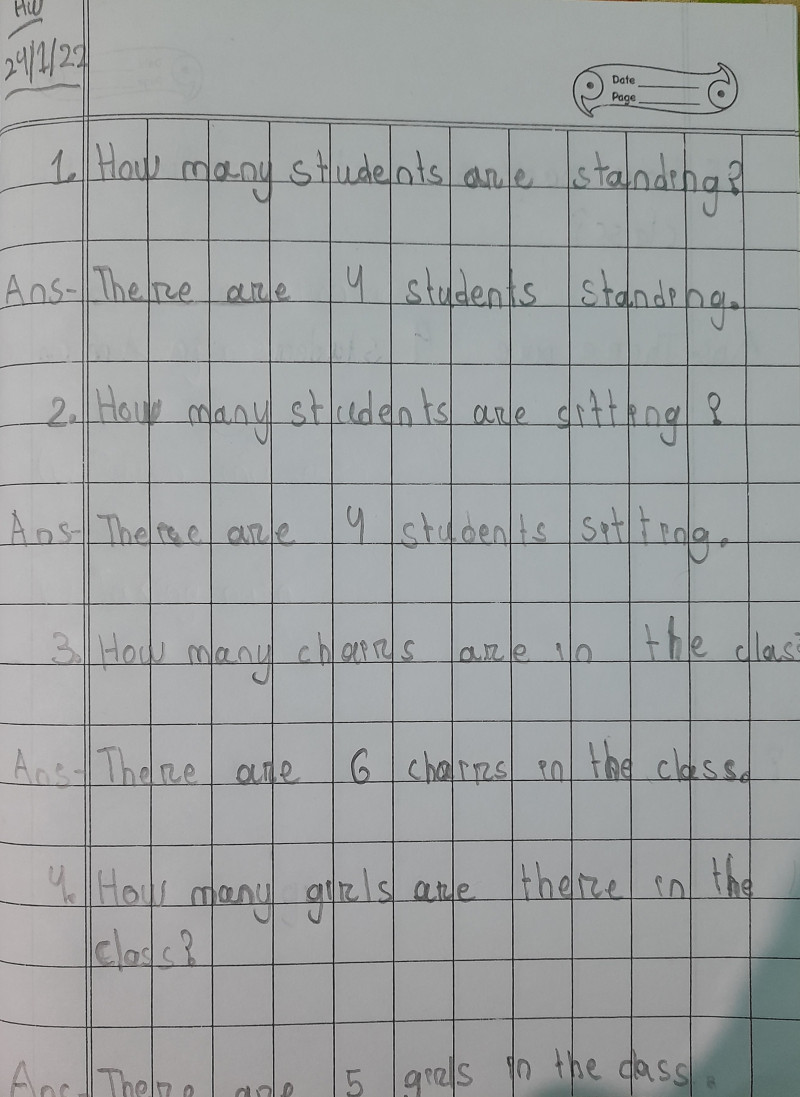 HW
29/1/22
Date
Page
1. How many students are standing?
Ans- There are 4 students standing.
2. How many students are sitting?
Ans- There are 4 students sitting.
3. How many chairs are in the clas
Ans- There are 6 chairs in the class.
4. How many girls are there in the
class?
Ans- There are 5 girls in the class.